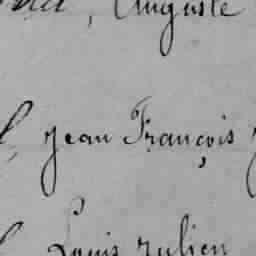 , Auguste
, jean François
Louis julien